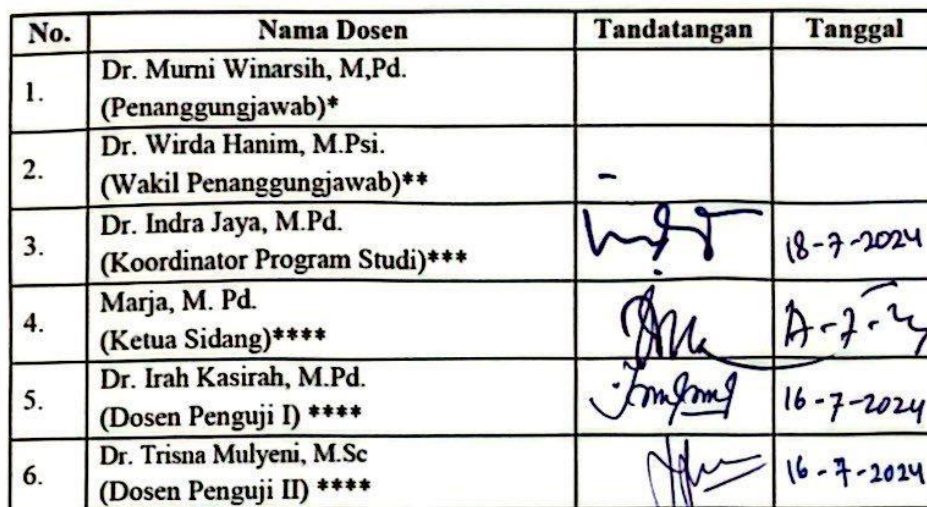 No. Nama Dosen Tandatangan Tanggal
1. Dr. Murni Winarsih, M,Pd.
(Penanggungjawab)*
2. Dr. Wirda Hanim, M.Psi.
(Wakil Penanggungjawab)**
3. Dr. Indra Jaya, M.Pd.
(Koordinator Program Studi)*** 18-7-2024
4. Marja, M. Pd.
(Ketua Sidang)****
5. Dr. Irah Kasirah, M.Pd.
(Dosen Penguji I) **** 16-7-2024
6. Dr. Trisna Mulyeni, M.Sc
(Dosen Penguji II) **** 16-7-2024